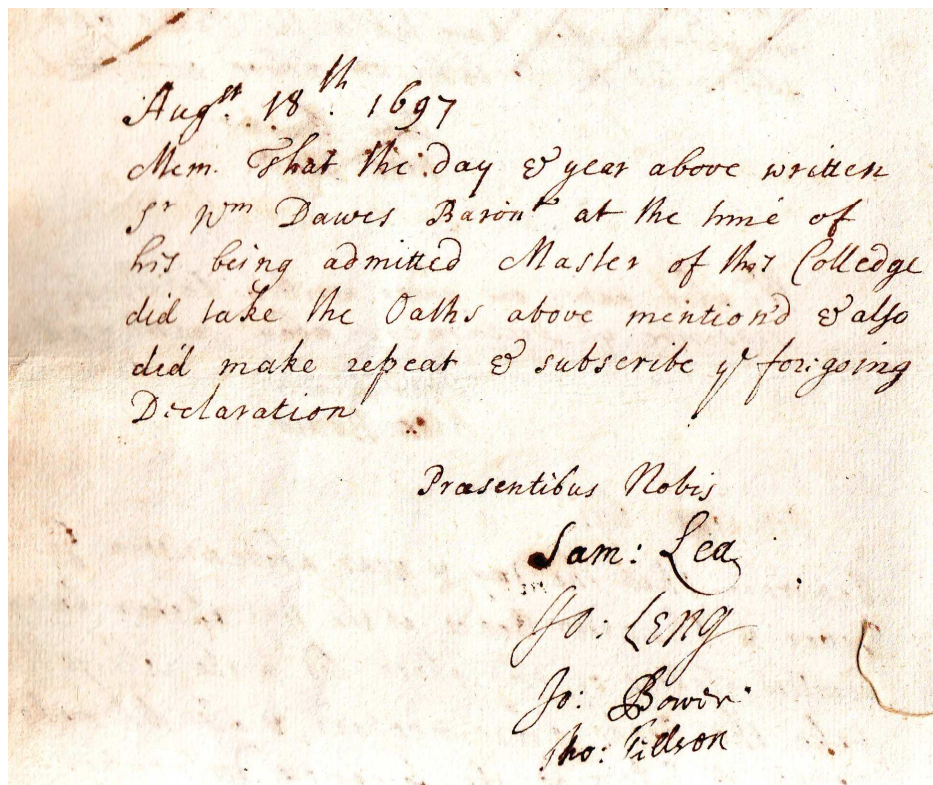 Augst. 18th. 1697
Mem. That the day & year above written
Sr Wm Dawes Baront at the time of
his being admitted Master of this Colledge
did take the Oaths above mention'd & also
did make repeat & subscribe ye foregoing
Declaration
Præsentibus Nobis
Sam: Lea
Jo: Leng
Jo: Bower
Tho: Tillson